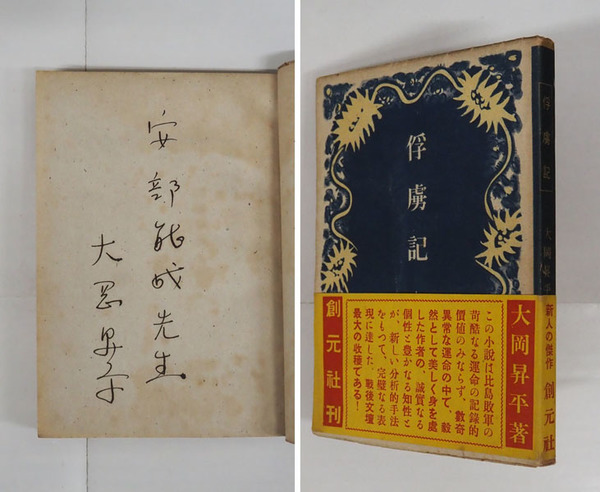 安部能成先生
大岡昇平
俘虜記
大岡昇平著
この小説は比島敗軍の
苛酷なる運命の記録的
価値のみならず、数奇
異常な運命の中で、毅
然として美しく身を處
した作者の、誠實なる
個性と豊かなる知性と
が、新しい分析的手法
をもつて、完璧なる表
現に達した、戰後文壇
最大の收穫である!
創元社刊
俘虜記
大岡昇平
新人の傑作
創元社